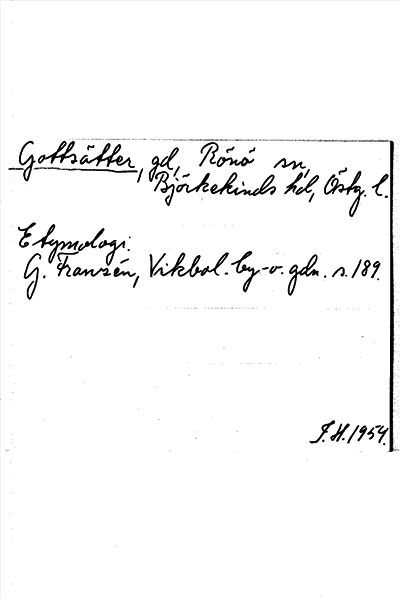 Gottsätter, gd, Rönö sn,
Björkekinds hd, Östg. l.
Etymologi.
G. Franzén, Vikbol. by- o. gdn. s. 189.
J.H. 1954.